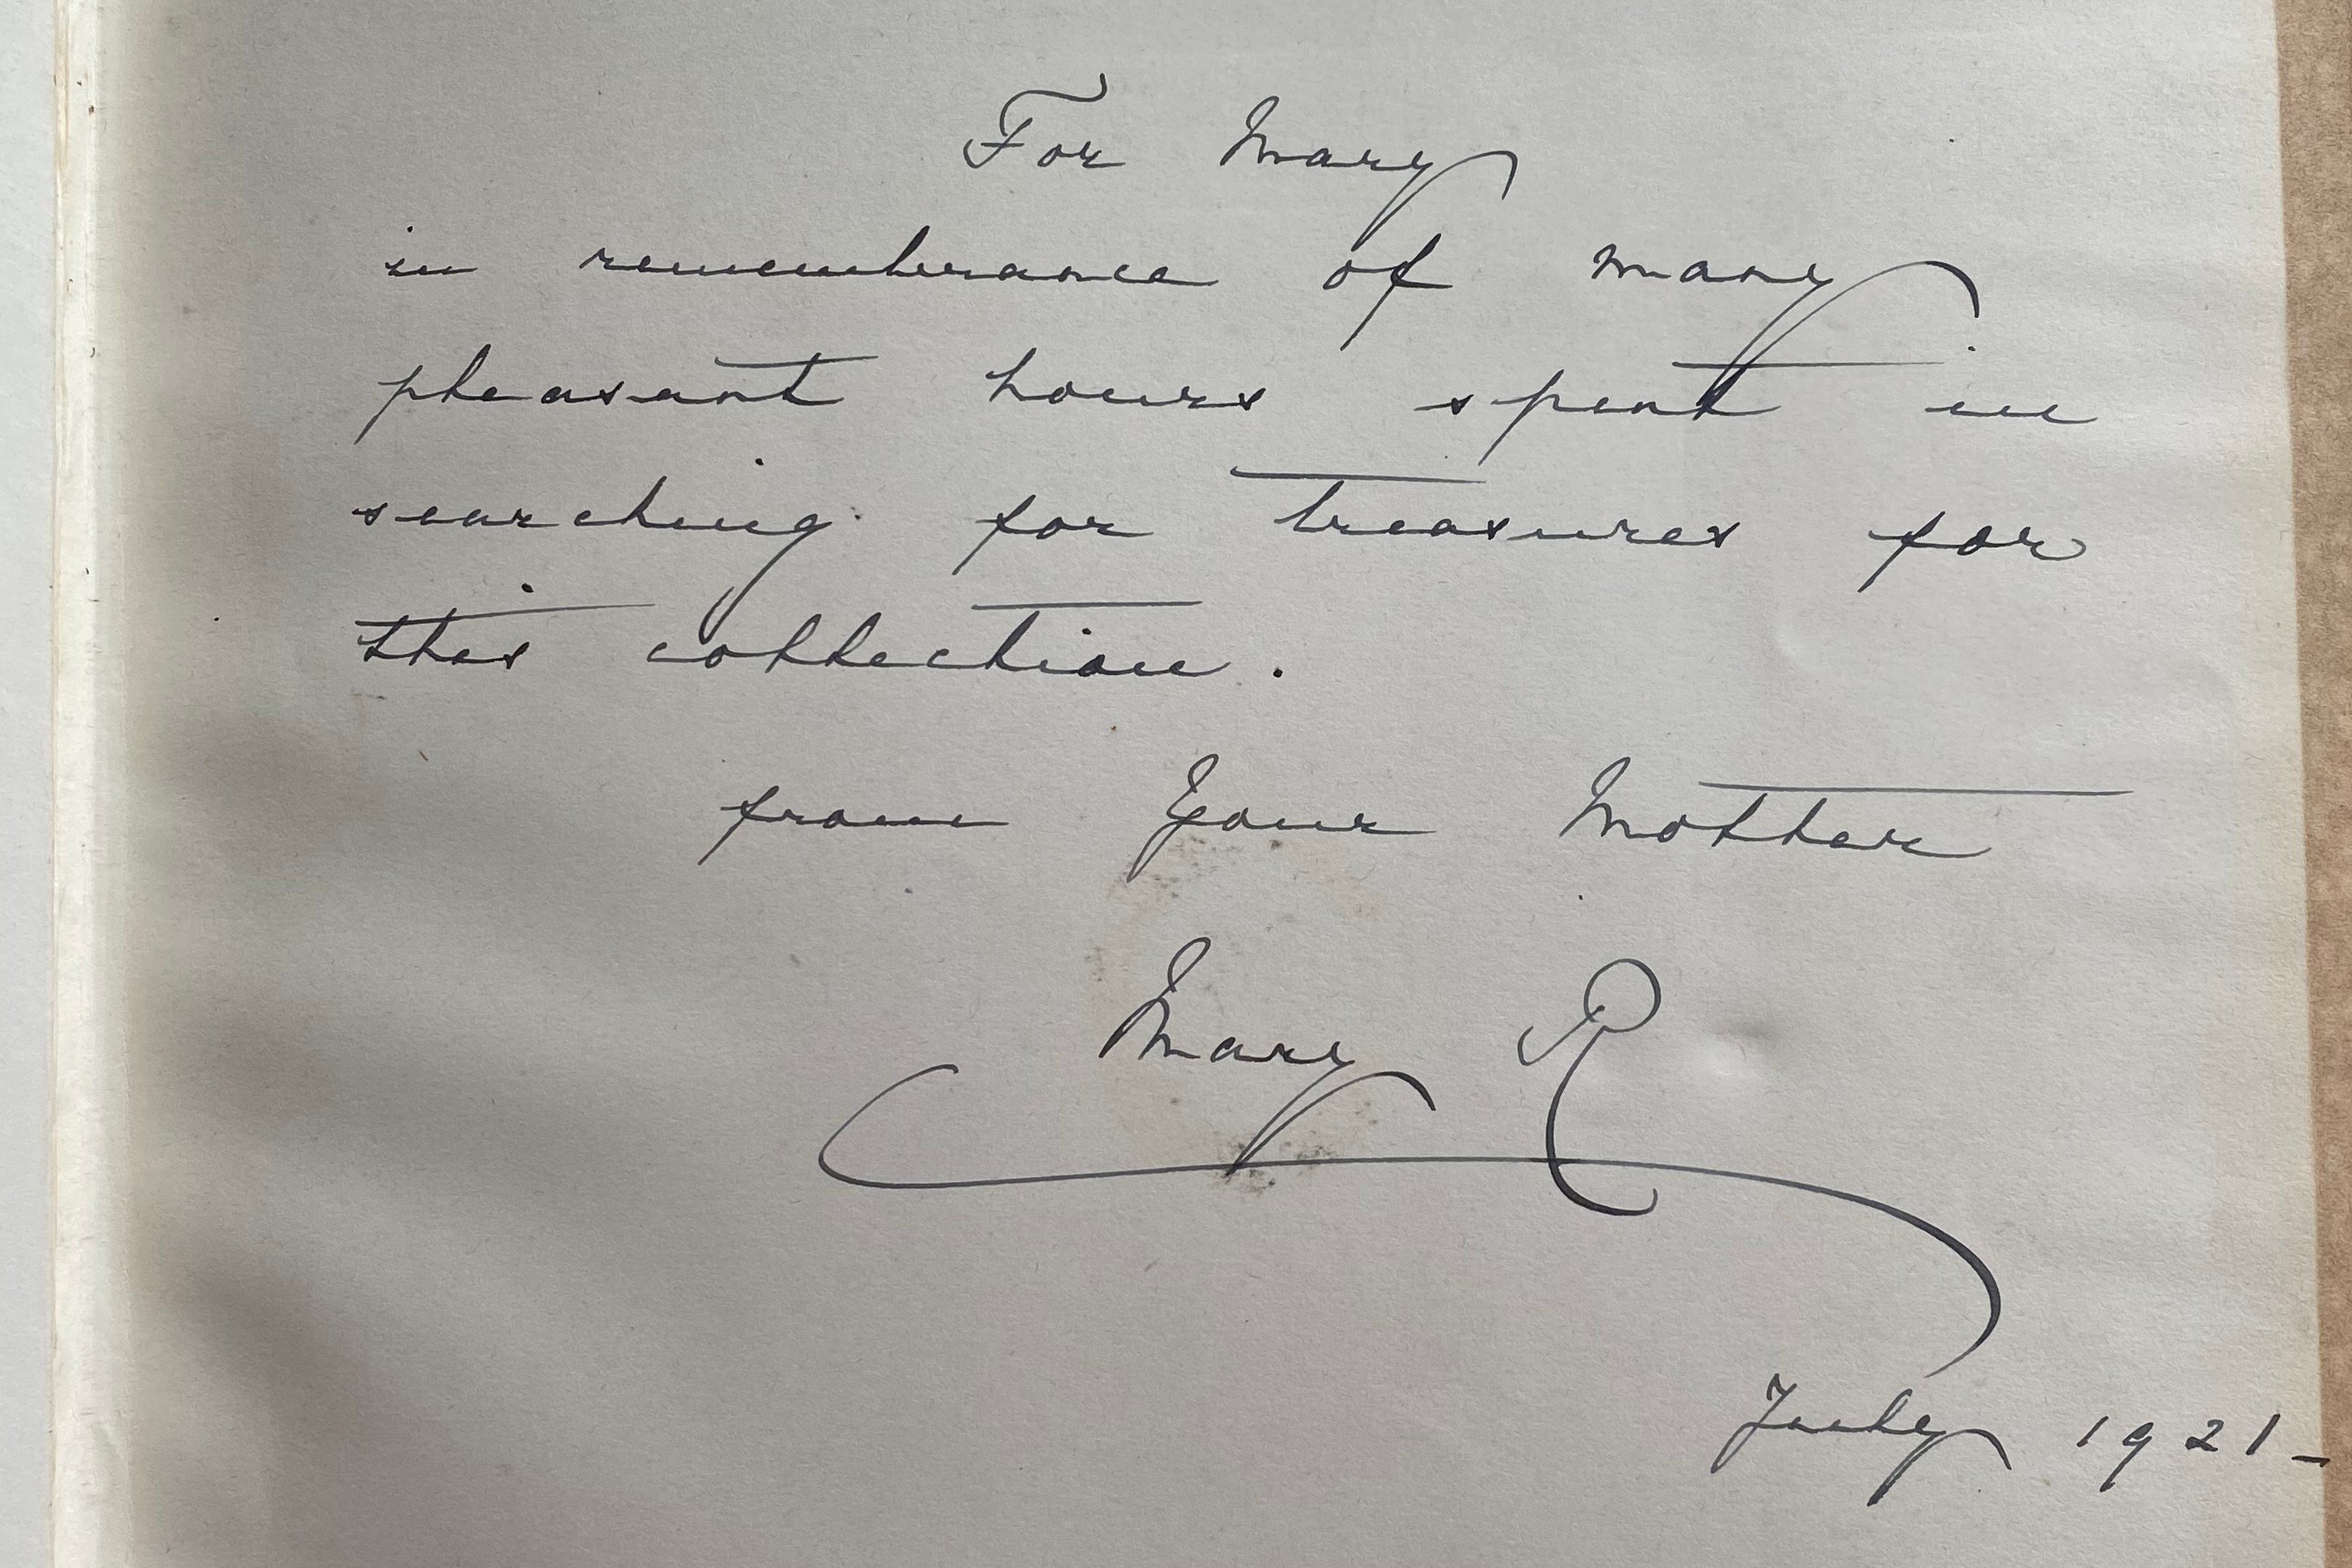 For Mary
in remembrance of many
pleasant hours spent in
searching for treasures for
this collection.
from Your Mother
Mary R
July 1921-